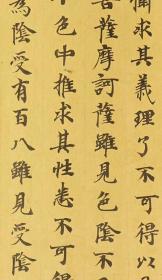 聞求其義理了不可得以
菩薩摩訶薩雖見色陰不
色中推求其性悉不可得
為陰受有百八雖見受陰